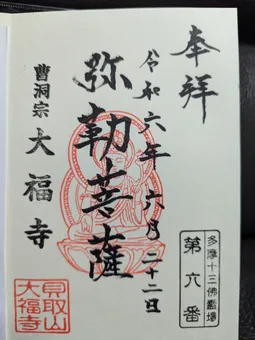 奉拝
令和六年 六月二十二日
弥勒菩薩
曹洞宗 大福寺
多摩十三佛霊場
第六番
見取山
大福寺